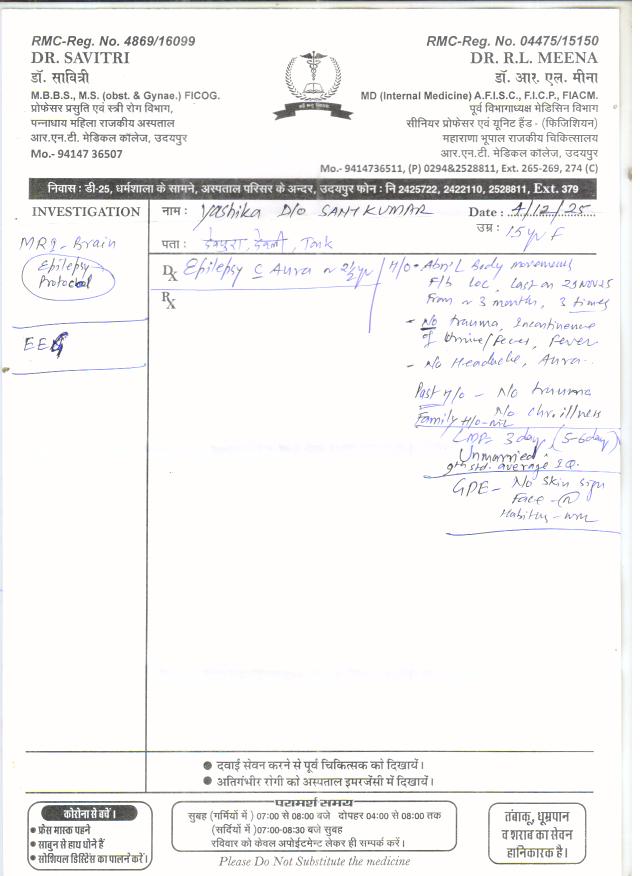 RMC-Reg. No. 4869/16099
DR. SAVITRI
डॉ. सावित्री
M.B.B.S., M.S. (obst. & Gynae.) FICOG.
प्रोफेसर प्रसुति एवं स्त्री रोग विभाग,
पन्नाधाय महिला राजकीय अस्पताल
आर.एन.टी. मेडिकल कॉलेज, उदयपुर
Mo.- 94147 36507
RMC-Reg. No. 04475/15150
DR. R.L. MEENA
डॉ. आर. एल. मीना
MD (Internal Medicine) A.F.I.S.C., F.I.C.P., FIACM.
पूर्व विभागाध्यक्ष मेडिसिन विभाग
सीनियर प्रोफेसर एवं यूनिट हैंड - (फिजिशियन)
महाराणा भूपाल राजकीय चिकित्सालय
आर.एन.टी. मेडिकल कॉलेज, उदयपुर
Mo.- 9414736511, (P) 0294&2528811, Ext. 265-269, 274 (C)
निवास : डी-25, धर्मशाला के सामने, अस्पताल परिसर के अन्दर, उदयपुर फोन : नि 2425722, 2422110, 2528811, Ext. 379
INVESTIGATION
नाम : Yashika D/O SANTKUMAR
Date : 4/12/25
उम्र : 15 yr F
पता : देवपुरा, देवली, Tonk
MRI - Brain
Epilepsy
Protocol
EEG
Dx Epilepsy c Aura ~ 2½ yr
Rx
H/O - Abn'l Body movements
F/b LOC, last on 29 NOV 25
From ~ 3 month, 3 times
- No trauma, Incontinence
of Urine/Feces, Fever
- No Headache, Aura
Past H/O - No trauma
No chr. illness
Family H/O - nil
LMP - 3 day (5-6 day)
Unmarried
9th std. average I.Q.
GPE - No skin sign
Face - N
Habitus -
दवाई सेवन करने से पूर्व चिकित्सक को दिखायें।
अतिगंभीर रोगी को अस्पताल इमरजेंसी में दिखायें।
कोरोना से बचें।
फ्रेस मास्क पहने
साबुन से हाथ धोने हैं
सोशियल डिस्टिेंस का पालने करें।
परामर्श समय
सुबह (गर्मियों में ) 07:00 से 08:00 बजे दोपहर 04:00 से 08:00 तक
(सर्दियों में )07:00-08:30 बजे सुबह
रविवार को केवल अपोईटमेन्ट लेकर ही सम्पर्क करें।
Please Do Not Substitute the medicine
तंबाकू, धूम्रपान
व शराब का सेवन
हानिकारक है।